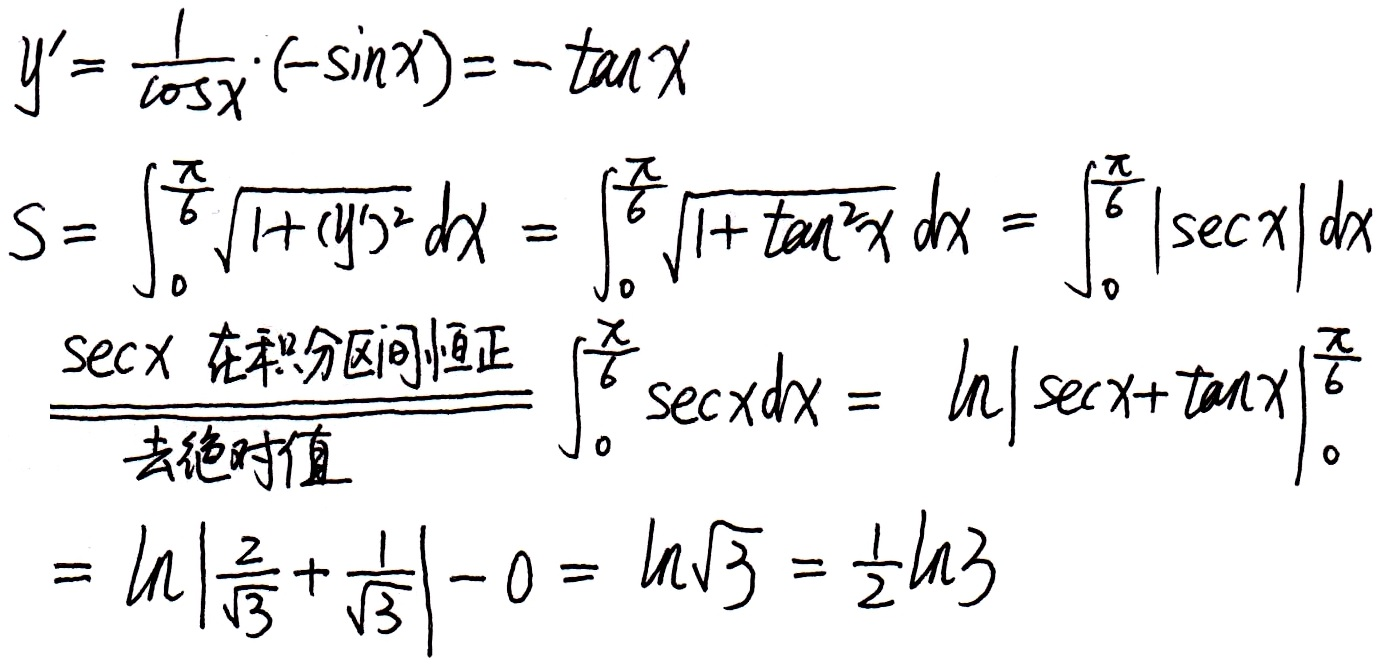 y' = \frac{1}{\cos x} \cdot (-\sin x) = -\tan x
S = \int_0^{\frac{\pi}{6}} \sqrt{1+(y')^2} dx = \int_0^{\frac{\pi}{6}} \sqrt{1+\tan^2 x} dx = \int_0^{\frac{\pi}{6}} |\sec x| dx
\xlongequal[去绝对值]{\sec x 在积分区间恒正} \int_0^{\frac{\pi}{6}} \sec x dx = \ln|\sec x + \tan x| \Big|_0^{\frac{\pi}{6}}
= \ln\left|\frac{2}{\sqrt{3}} + \frac{1}{\sqrt{3}}\right| - 0 = \ln\sqrt{3} = \frac{1}{2}\ln 3